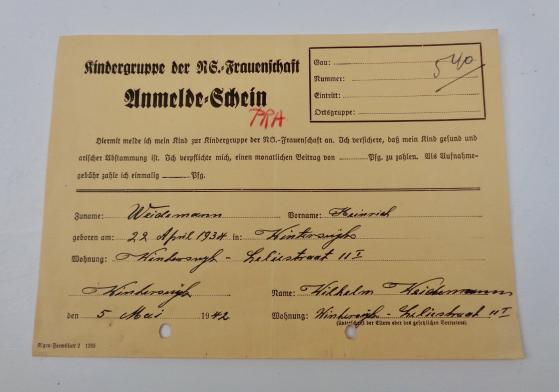 Kindergruppe der NS.-Frauenschaft
Anmelde-Schein
PRA
Gau:
Nummer:
Eintritt:
Ortsgruppe:
540
Hiermit melde ich mein Kind zur Kindergruppe der NS.-Frauenschaft an. Ich versichere, daß mein Kind gesund und
arischer Abstammung ist. Ich verpflichte mich, einen monatlichen Beitrag von Pfg. zu zahlen. Als Aufnahme-
gebühr zahle ich einmalig Pfg.
Zuname: Weidemann Vorname: Heinrich
geboren am: 22 April 1934 in:
Wohnung:
Name: Wilhelm Weidemann
den 5 Mai 1942 Wohnung:
(Unterschrift der Eltern oder des gesetzlichen Vertreters)